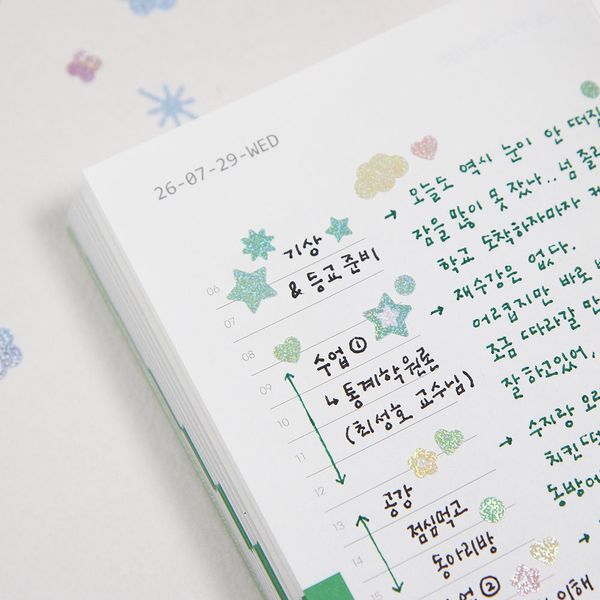 26-07-29-WED
기상
& 등교 준비
06
07
08
수업 ①
09
↳ 통계학원론
10
(최성호 교수님)
11
12
공강
13
점심먹고
14
동아리방
15
②
→ 오늘도 역시 눈이 안 떠짐
잠을 많이 못 잤나.. 넘 졸
학교 도착하자마자
→ 재수강은 없다.
어렵지만 바로
조금 따라갈 만
잘하고있어,
→ 수지랑
치킨
동방
이해